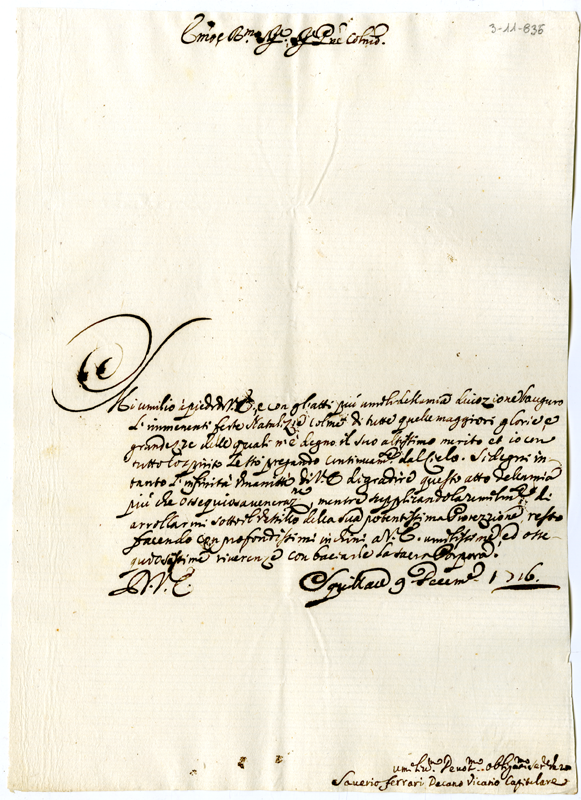 3-11-835
Em̃o, e R.mo Sig.re, Sig.re P̃ne Colmo.
Mi umilio à piedi di V.E., e con gl'atti più umili della mia divozione l'auguro
l'imminenti feste Natalizie colme di tutte quelle maggiori glorie, e
grandezze delle quali n'è degno il suo altissimo merito et io con
tutto lo spirito le stò pregando continuam.te dal Cielo. Si degni in-
tanto l'infinita umanità di V.E. di gradire questo atto della mia
più che ossequiosa veneraz.ne, mentre supplicandola umilm.te di
arrollarmi sotto il della sua potentissima Protezzione, resto
facendo con profondissimi inchini a V.E. umilissime, ed osse-
quiosissime riverenze con baciarle la sacra Porpora.
D.V.E.
Squillace 9 Decem.e 1716.
um.o Devot.mo oblig.mo
Saverio Ferrari Decano Vicario Capitulare